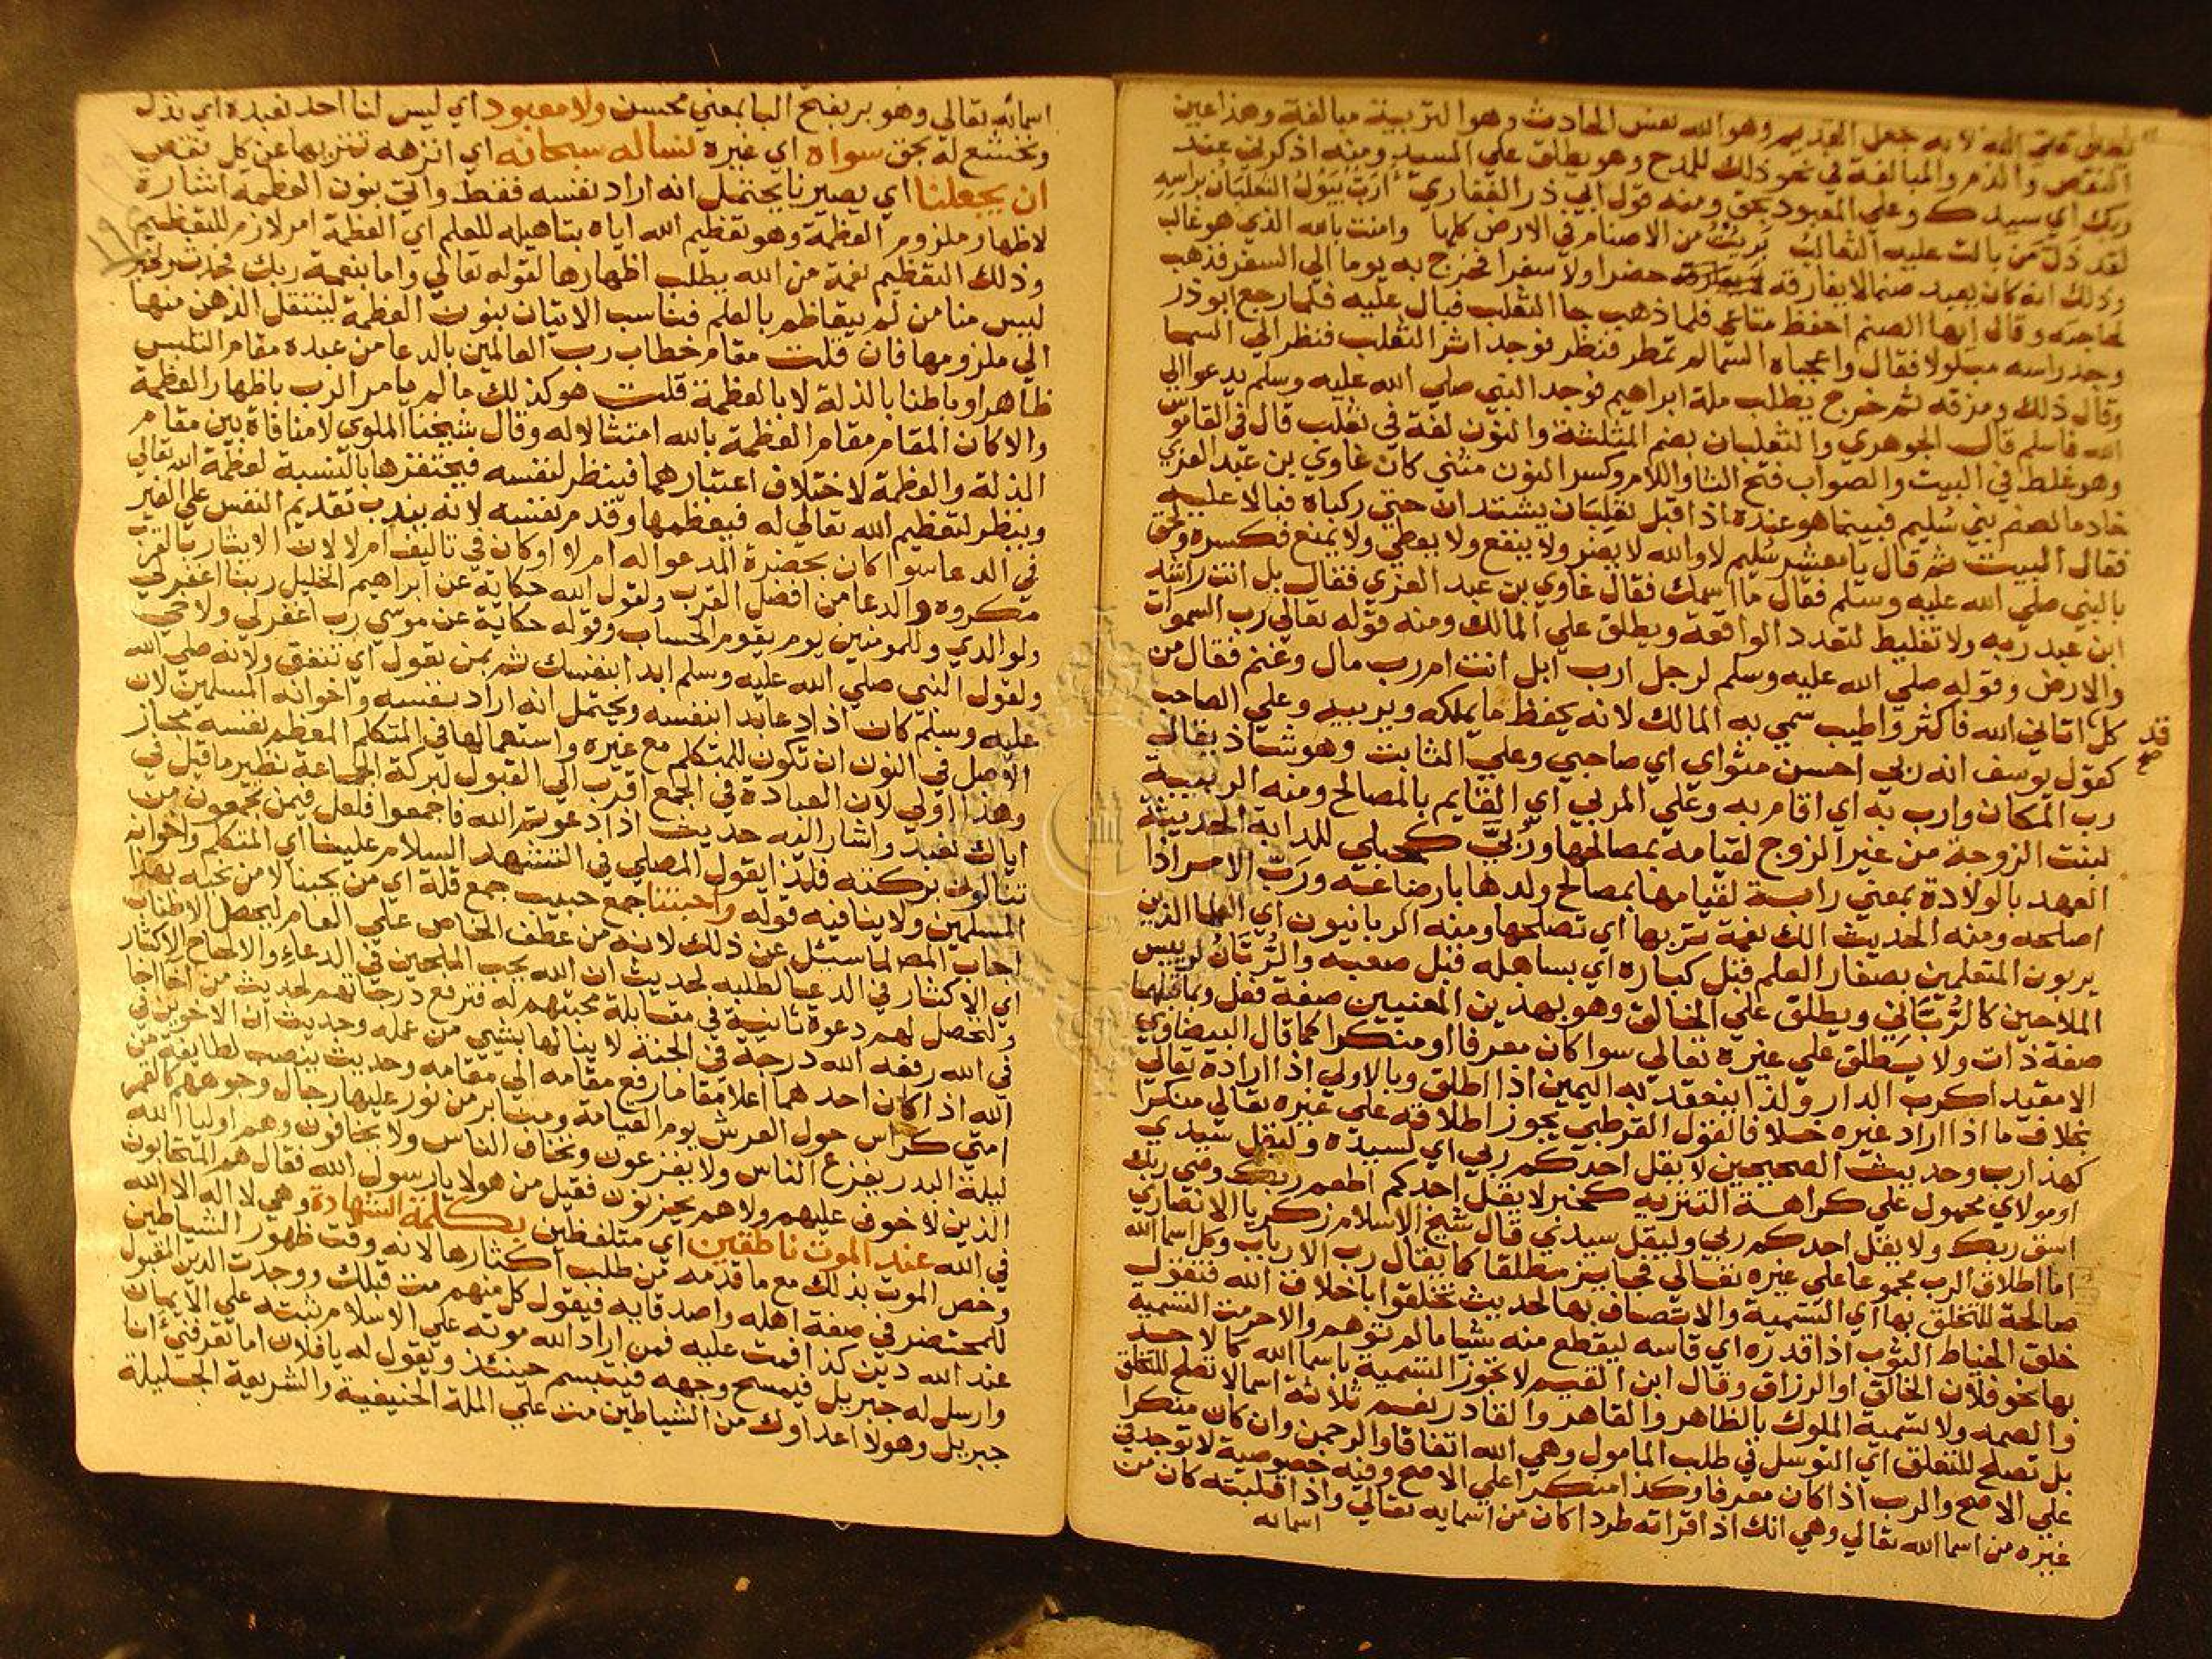 لانه جعل القديم وهو الله نفس الحادث وهو التربية مبالغة وهذا عين
النقص والذم والمبالغة في نحو ذلك للمدح وهو يطلق علي السيد ومنه اذكرني عند
ربك اي سيدك وعلي المعبود بحق ومنه قول ابي ذر الغفاري أرَبٌّ يبول الثعلبان براسه
لقد ذل من بالت عليه الثعالب بَرِئتُ من الاصنام في الارض كلها وامنت بالله الذي هو غالب
وذلك انه كان يعبد صنما لا يفارقه حضرا ولا سفرا فخرج به يوما الي السفر فذهب
لحاجته وقال ايها الصنم احفظ متاعي فلما ذهب جا الثعلب فبال عليه فلما رجع ابو ذر
وجد راسه مبلولا فقال واعجباه السما لم تمطر فنظر فوجد اثر الثعلب فنظر الي السما
وقال ذلك ومزقه ثم خرج يطلب ملة ابراهيم فوجد النبي صلي الله عليه وسلم يدعو الي
الله فاسلم قال الجوهري والثعلبان بضم المثلثة والنون لغة في ثعلب قال في القاموس
وهو غلط في البيت والصواب فتح الثا واللام وكسر النون مثني كان غاوي بن عبد العزي
خادما لصنم بني سُليم فبينما هو عنده اذ اقبل ثعلبان يشتدان حتي ركباه فبالا عليه
فقال البيت ثم قال يا معشر سُليم لا والله لا يضر ولا ينفع ولا يعطي ولا يمنع فكسره ولحق
بالنبي صلي الله عليه وسلم فقال ما اسمك فقال غاوي بن عبد العزي فقال بل انت راشد
ابن عبد ربه ولا تغليط لتعدد الواقعة ويطلق علي المالك ومنه قوله تعالي رب السموات
والارض وقوله صلي الله عليه وسلم لرجل ارب ابل انت ام رب مال وغنم فقال من
كل اتاني الله فاكثر واطيب سمي به المالك لانه يحفظ ما يملكه ويربيه وعلي الصاحب
قد
صح
كقول يوسف انه ربي احسن مثواي اي صاحبي وعلي الثابت وهو شاذ يقال
رب المكان وارب به اي اقام به وعلي المربي اي القايم بالمصالح ومنه الربيبة
لبنت الزوجة من غير الزوج لقيامه بمصالحها ورُبّي كحبلي للدابة الحديثة
العهد بالولادة بمعني رابية لقيامها بمصالح ولدها بارضاعه وربّ الامر اذا
اصلحه ومنه الحديث الك نعمة تربها اي تصلحها ومنه الربانيون اي العلما الذين
يربون المتعلمين بصغار العلم قبل كباره اي بساهله قبل صعبه والرُّبّان لرييس
الملاحين كالرُّبّاني ويطلق علي الخالق وهو بهذين المعنيين صفة فعل وبما قبلهما
صفة ذات ولا يطلق علي غيره تعالي سوا كان معرفا او منكرا كما قال البيضاوي
الا مقيدا كرب الدار ولذا ينعقد به اليمين اذا اطلق وبالاولي اذا اراده تعالي
بخلاف ما اذا اراد غيره خلافا لقول القرطبي يجوز اطلاقه علي غيره تعالي منكرا
كهذا رب وحديث الصحيحين لا يقل احدكم ربي اي لسيده وليقل سيدي
او مولاي محمول علي كراهة التنزيه كخبر لا يقل احدكم اطعم ربك وضي ربك
اسق ربك ولا يقل احدكم ربي وليقل سيدي قال شيخ الاسلام زكريا الانصاري
اما اطلاق الرب مجموعا علي غيره تعالي فجايز مطلقا كما يقال رب الارباب وكل اسما الله
صالحة للتخلق بها اي التسمية والاتصاف بها لحديث تخلقوا باخلاق الله فتقول
خلق الخياط الثوب اذا قدره اي قاسه ليقطع منه شيا ما لم توهم والا حرمت التسمية
بها نحو فلان الخالق او الرزاق وقال ابن القيم لا تجوز التسمية باسما الله كالاحد
والصمد ولا تسمية الملوك بالظاهر والقاهر والقادر نعم ثلاثة اسما لا تصلح للتخلق
بل تصلح للتعلق اي التوسل في طلب المامول وهي الله اتفاقا والرحمن وان كان منكرا
علي الاصح والرب اذا كان معرفا وكذا منكرا علي الاصح وفيه خصوصية لا توجد في
غيره من اسما الله تعالي وهي انك اذا قراته طردا كان من اسمايه تعالي واذا قلبته كان من
اسمائه
اسمائه تعالي وهو بر بفتح البا بمعني محسن ولا معبود اي ليس لنا احد نعبده اي نذل
ونخشع له بحق سواه اي غيره نساله سبحانه اي انزهه تنزيها عن كل نقص
ان يجعلنا اي يصيرنا يحتمل انه اراد نفسه فقط واتي بنون العظمة اشارة
لاظهار ملزوم العظمة وهو تعظيم الله اياه بتاهيله للعلم اي العظمة امر لازم للتعظيم
وذلك التعظيم نعمة من الله يطلب اظهارها لقوله تعالي واما بنعمة ربك فحدث ولخبر
ليس منا من لم يتعاظم بالعلم فناسب الاتيان بنون العظمة لينتقل الذهن منها
الي ملزومها فان قلت مقام خطاب رب العالمين بالدعا من عبده مقام التلبس
ظاهرا وباطنا بالذلة لا بالعظمة قلت هو كذلك ما لم يامر الرب باظهار العظمة
والا كان المقام مقام العظمة بالله امتثالا له وقال شيخنا الملوي لا منافاة بين مقام
المذلة والعظمة لاختلاف اعتبارهما فينظر لنفسه فيحتقرها بالنسبة لعظمة الله تعالي
وينظر لتعظيم الله تعالي له فيعظمها وقدم نفسه لانه يندب تقديم النفس علي الغير
في الدعا سوا كان بحضرة المدعو له ام لا او كان في تاليف ام لا لان الايثار بالقرب
مكروه والدعا من افضل القرب ولقول الله حكاية عن ابراهيم الخليل ربنا اغفر لي
ولوالدي وللمومنين يوم يقوم الحساب وقوله حكاية عن موسي رب اغفر لي ولاخي
ولقول النبي صلي الله عليه وسلم ابدا بنفسك ثم بمن تعول اي تنفق ولانه صلي الله
عليه وسلم كان اذا دعا بدا بنفسه ويحتمل انه اراد نفسه واخوانه المسلمين لان
الاصل في النون ان تكون للمتكلم مع غيره واستعمالها في المتكلم المعظم نفسه مجاز
وهذا اولي لان العبادة في الجمع اقرب الي القبول لبركة الجماعة نظير ما قيل في
اياك نعبد واشار اليه حديث اذا دعوتم الله فاجمعوا فلعل فيمن تجمعون من
تنالون بركته فلذا يقول المصلي في التشهد السلام علينا اي المتكلم واخوانه
المسلمين ولا ينافيه قوله واحبتنا جمع حبيب جمع قلة اي من يحبنا لا من نحبه بهذا
اجاب المص لما سئل عن ذلك لانه من عطف الخاص علي العام ليحصل الاطناب
اي الاكثار في الدعا لطلبه لحديث ان الله يحب الملحين في الدعاء والالحاح الاكثار
ولتحصل لهم دعوة ثانية في مقابلة محبتهم له فترفع درجاتهم لحديث من اخا اخا
في الله رفعه الله درجة في الجنة لا ينالها بشيي من عمله وحديث ان الاخوين في
الله اذا كان احدهما اعلا مقاما رفع مقامه الي مقامه وحديث ينصب لطايفة من
امتي كراس حول العرش يوم القيامة ومنابر من نور عليها رجال وجوههم كالقمر
ليلة البدر يفزع الناس ولا يفزعون وتخاف الناس ولا يخافون وهم اوليا الله
الذين لا خوف عليهم ولا هم يحزنون فقيل من هولا يا رسول الله فقال هم المتحابون
في الله عند الموت ناطقين اي متلفظين بكلمة الشهادة وهي لا اله الا الله
وخص الموت بذلك مع ما قدمه من طلب اكثارها لانه وقت ظهور الشياطين
للمحتضر في صفة اهله واصدقايه فيقول كل منهم مت قبلك ووجدت الدين المقبول
عند الله دين كذا فمت عليه فمن اراد الله موته علي الاسلام ثبته علي الايمان
وارسل له جبريل فيمسح وجهه فيتبسم حينئذ ويقول له يا فلان اما تعرفني انا
جبريل وهولا اعداوك من الشياطين مت علي الملة الحنيفية والشريعة الجليلة